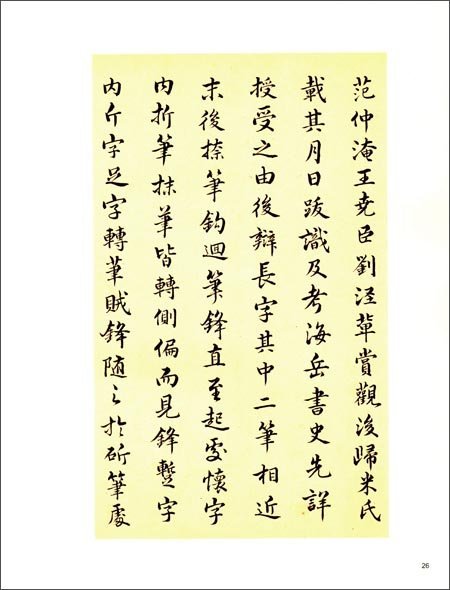 范仲淹王尭臣劉涇輩賞觀後歸米氏
載其月日跋識及考海岳書史先詳
授受之由後辯長字其中二筆相近
末後捺筆鈎迴筆鋒直至起處懷字
内折筆抹筆皆轉側偏而見鋒蹔字
内斤字足字轉筆賊鋒随之於斫筆處
26